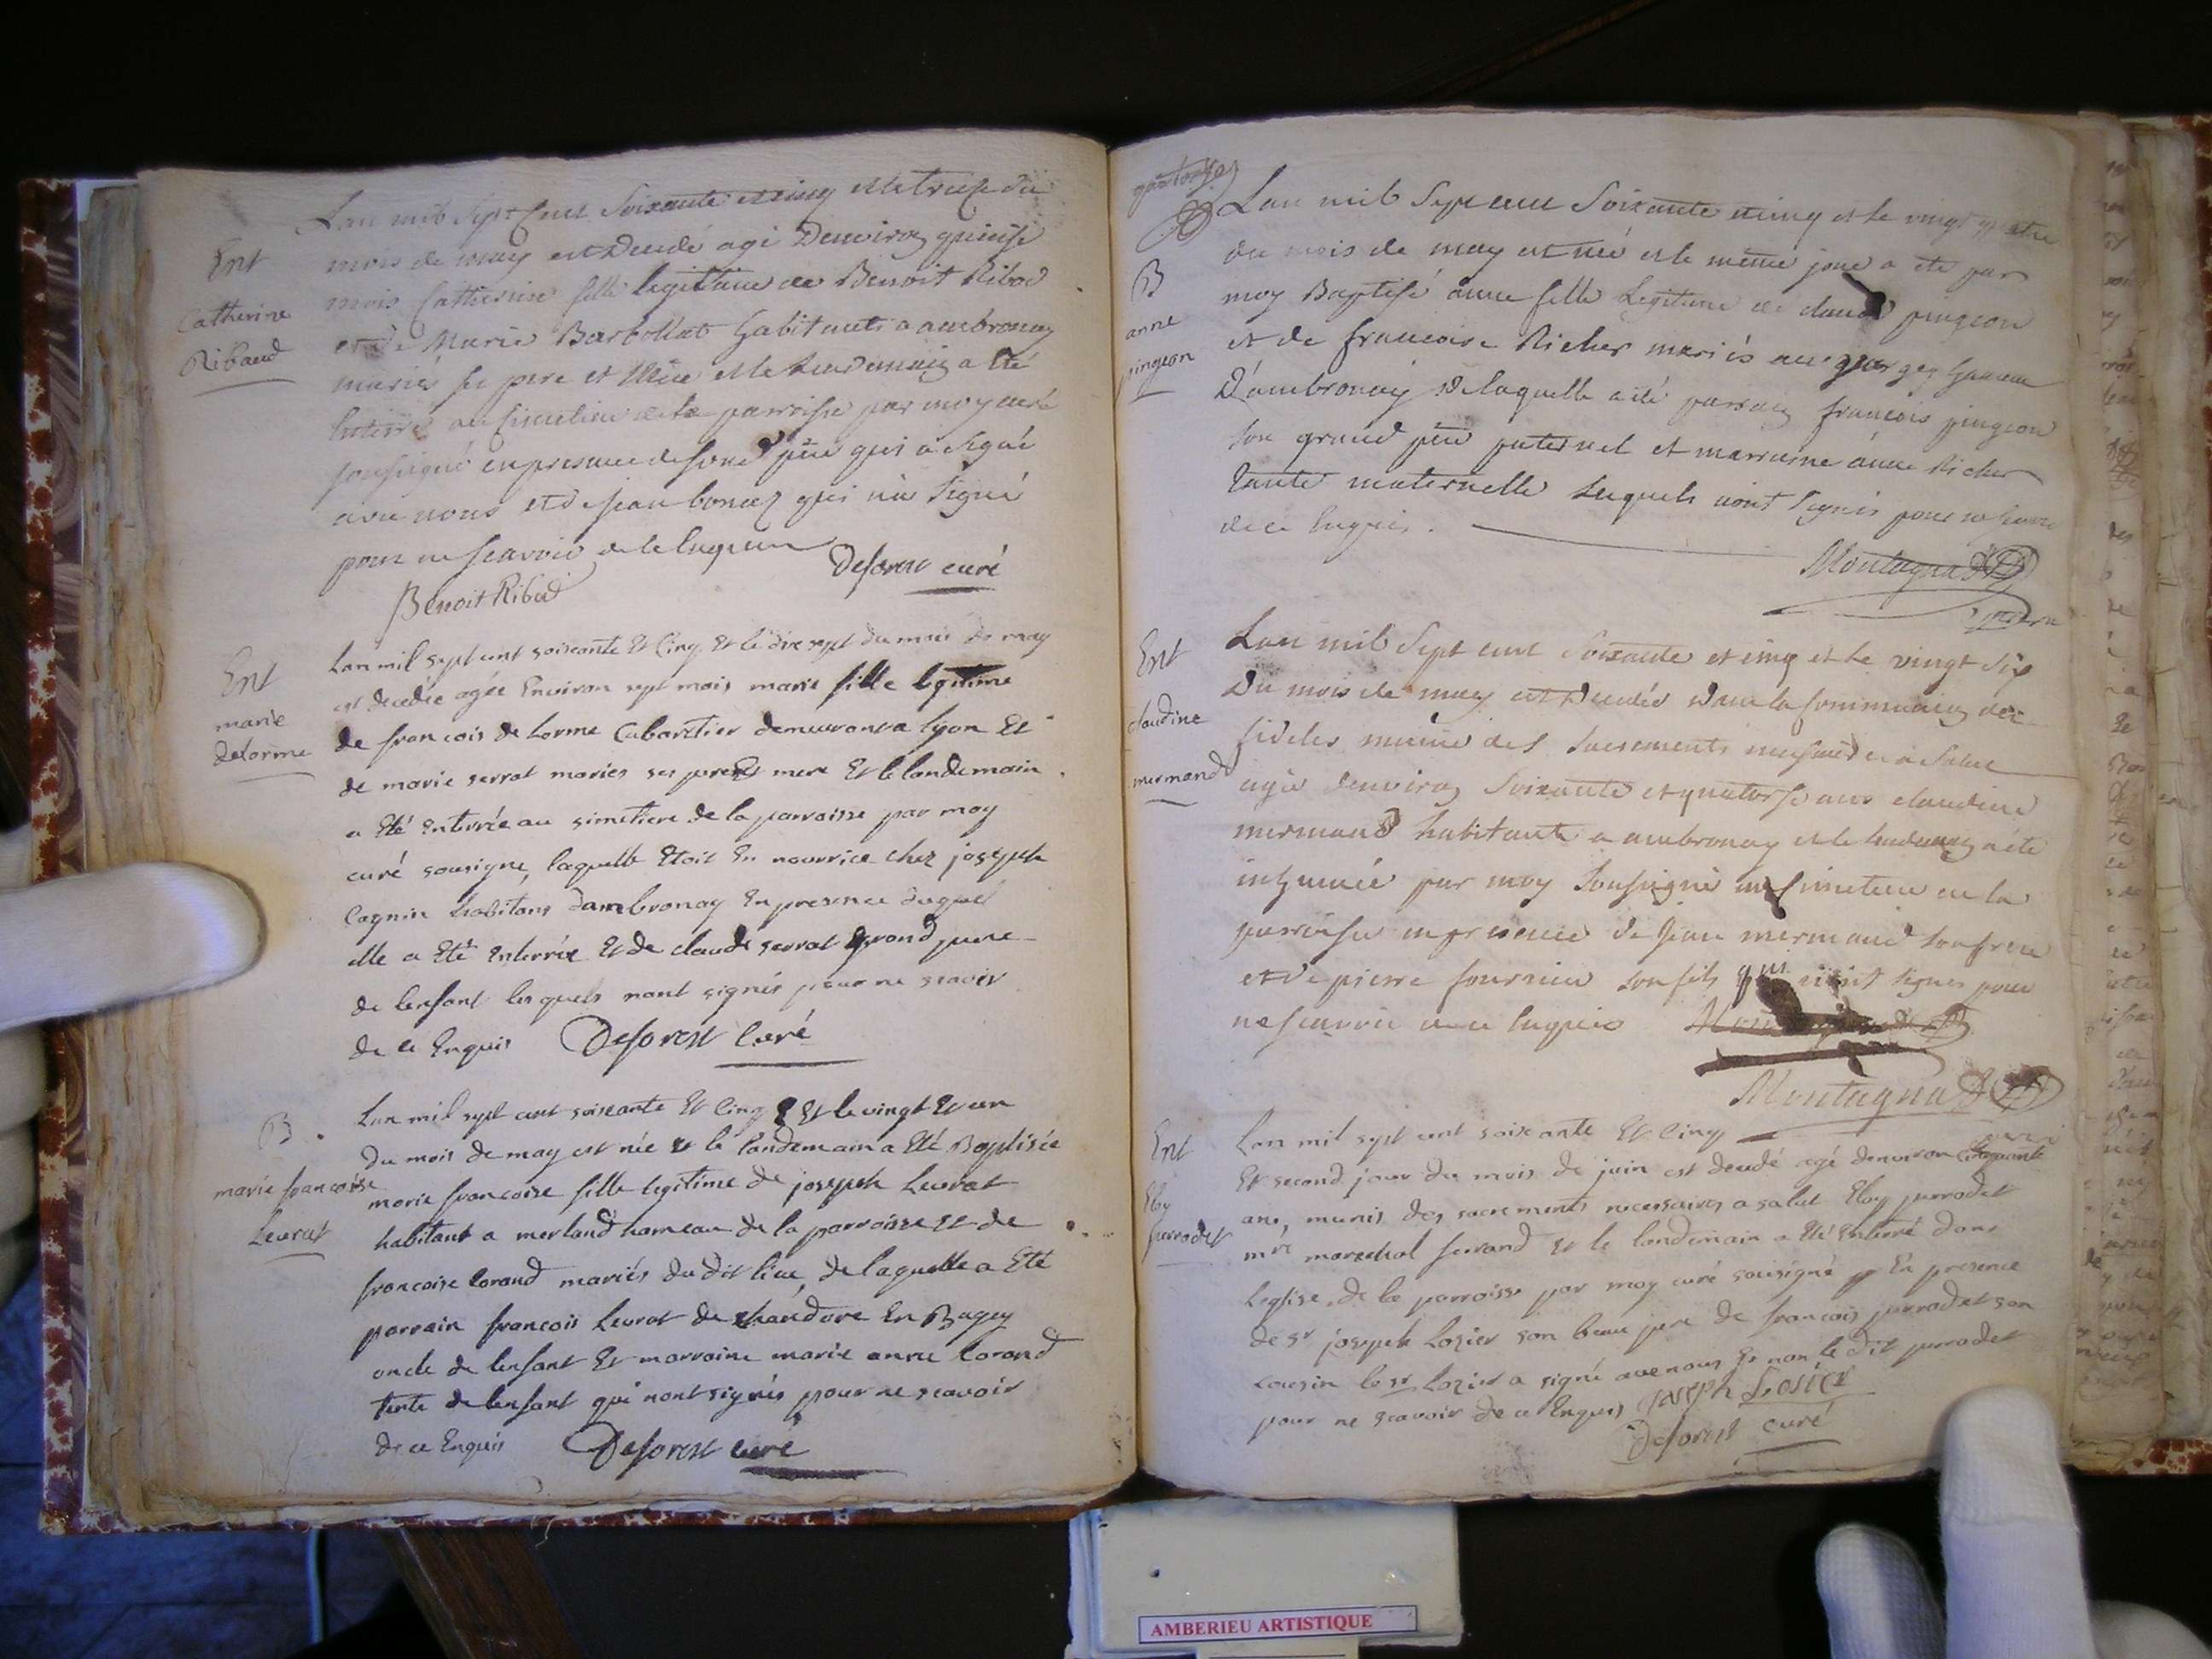 Lan mil sept cent soixante et cinq et le treize du
mois de may est decedé agé denviron quinse
mois Catherine fille legitime de Benoit Ribod
et de Marie Barbollat habitants a ambronay
mariés ses pere et mere et le lendemain a été
enterré au simetiere de la parroisse par moy curé
soussigné en presence de son pere qui a signé
avec nous et de jean qui n'a signé
pour ne scavoir de ce enquis
Deforest curé
Benoit Ribod
Ent
Catherine
Ribaud
Lan mil sept cent soixante Et Cinq Et le dix sept du mois de may
est decedée agée Environ sept mois marie fille legitime
de francois de Lorme Cabaretier demeurant a lyon Et
de marie serrat maries ses pere Et mere Et le landemain
a Eté Enterrée au simetiere de la parroisse par moy
curé sousigne, laquelle Etoit En nourrice chez joseph
Cagnin habitans dambronay En presence duquel
elle a Eté Enterrée Et de claude serrat grand pere
de lenfant lesquels nont signés pour ne scavoir
de ce Enquis Deforest Curé
Ent
marie
delorme
Lan mil sept cent soixante Et Cinq Et le vingt Et un
du mois de may est née Et le landemain a Eté Baptisée
marie francoise fille legitime de joseph Leurat
habitant a merland hameau de la parroisse Et de
francoise Corand mariés du dit lieu, de laquelle a Eté
parrain francois Leurat de chandore En Bugey
oncle de lenfant Et marraine marie anne Corand
tente de lenfant qui nont signés pour ne scavoir
de ce Enquis Deforest curé
B
marie francoise
Leurat
Lan mil sept cent soixante et cinq et le vingt quatre
du mois de may est née et le même jour a été par
moy Baptisé anne fille Legitime de claude pingeon
et de francoise Richer mariés au hameau
D'ambronay de laquelle a été parrain francois pingeon
son grand pere paternel et marraine anne Richer
tante maternelle lesquels n'ont signés pour ne scavoir
de ce enquis.
Montagnat
B
anne
pingeon
Lan mil sept cent soixante et cinq et le vingt six
du mois de may est decedée dans la communion des
fideles munie des sacrements necessaires a salut
agée denviron soixante et quatorse ans claudine
mermand habitante a ambronay et le lendemain a été
inhumée par moy soussigné au simetiere de la
parroisse en presence de jean mermand son frere
et de pierre fournier son fils qui n'ont signes pour
ne scavoir de ce enquis
Montagnat
Ent
claudine
mermand
Lan mil sept cent soixante Et Cinq
Et second jour du mois de juin est decedé agé denviron Cinquante
ans, munis des sacrements necessaires a salut Eloy perrodet
mtre marechal ferrand Et le landemain a Eté Enterré dans
Leglise de la parroisse par moy curé sousigné En presence
de sr joseph Lozier son beau pere de francois perrodet son
cousin le sr Lozier a signé avec nous Et non le dit perrodet
pour ne scavoir de ce Enquis joseph Losier
Deforest curé
Ent
Eloy
perrodet
AMBERIEU ARTISTIQUE